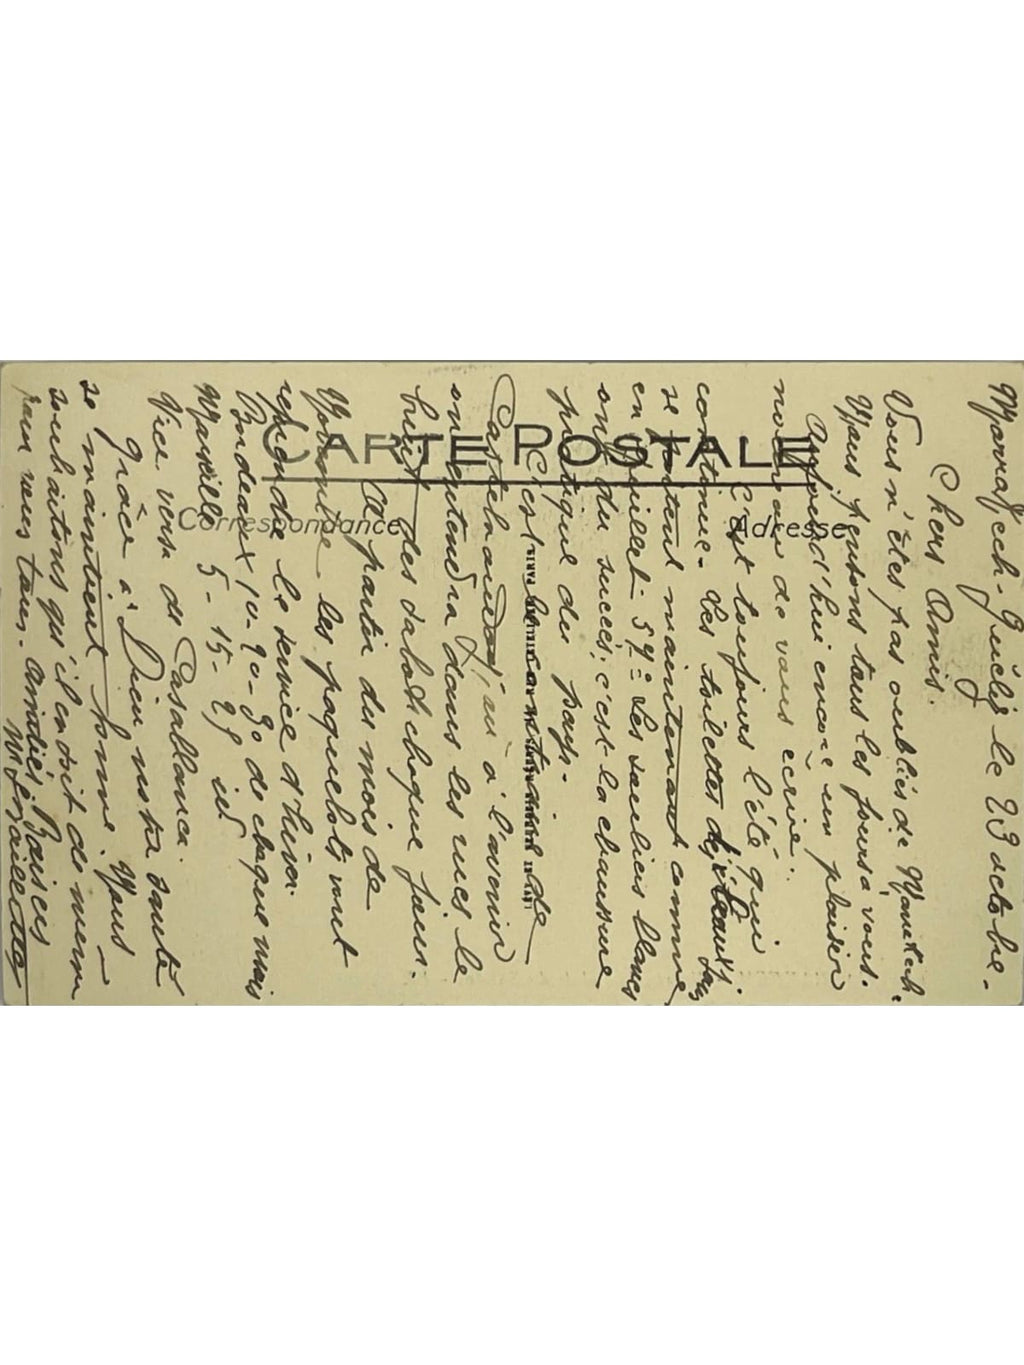 CARTE POSTALE
Correspondance
Adresse
Marrakech-Guéliz le 23 octobre.
Chers Amis.
Vous n'êtes pas oubliés de Marrakech.
Nous pensons tous les jours à vous.
Aujourd'hui encore un plaisir
nouveau de vous écrire.
C'est toujours l'été qui
continue. Les toilettes
se portent maintenant comme
en Juillet. Les souliers blancs
ont du succès, c'est la chaussure
pratique du pays.
C'est de
Castelnau à l'avenir
on entendra dans les rues le
bruit des sabots chaque jour.
A partir du mois de
Novembre les paquebots vont
reprendre le service d'hiver.
Bordeaux 10-20-30 de chaque mois
Marseille 5-15-25 id
Vice versa de Casablanca.
Grâce à Dieu notre santé
se maintient bonne. Nous
souhaitons qu'il en soit de même
pour vous tous. Amitiés, Baisers